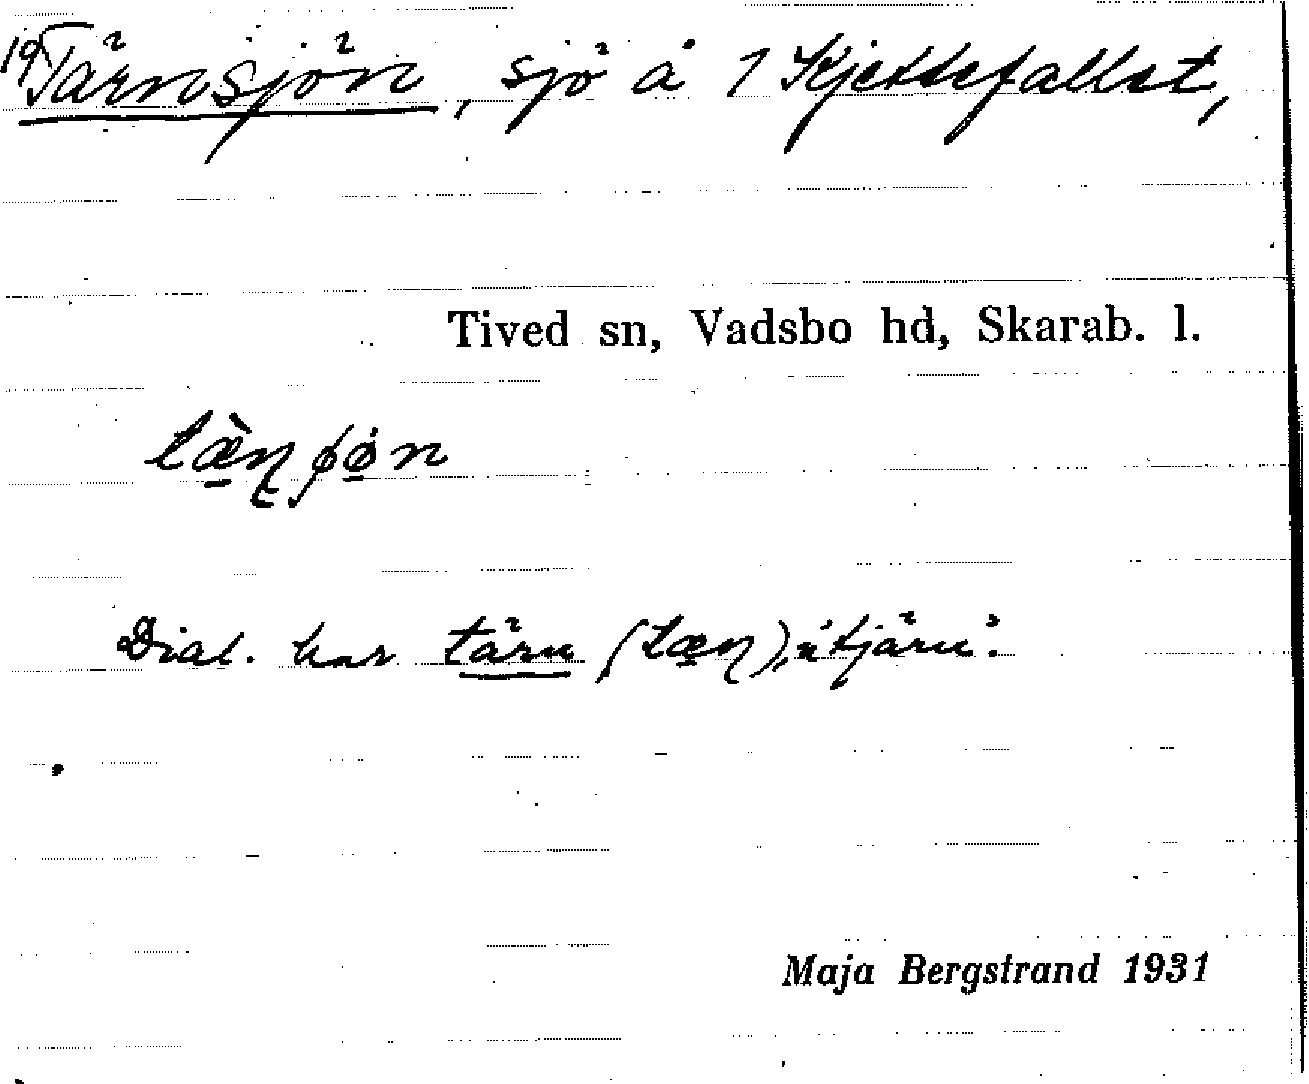 19 Tärnsjön, sjö å 1 Kjettefallet,
Tived sn, Vadsbo hd, Skarab. l.
Dial. har tärn (tæɳ), 'tjärn'.
Maja Bergstrand 1931